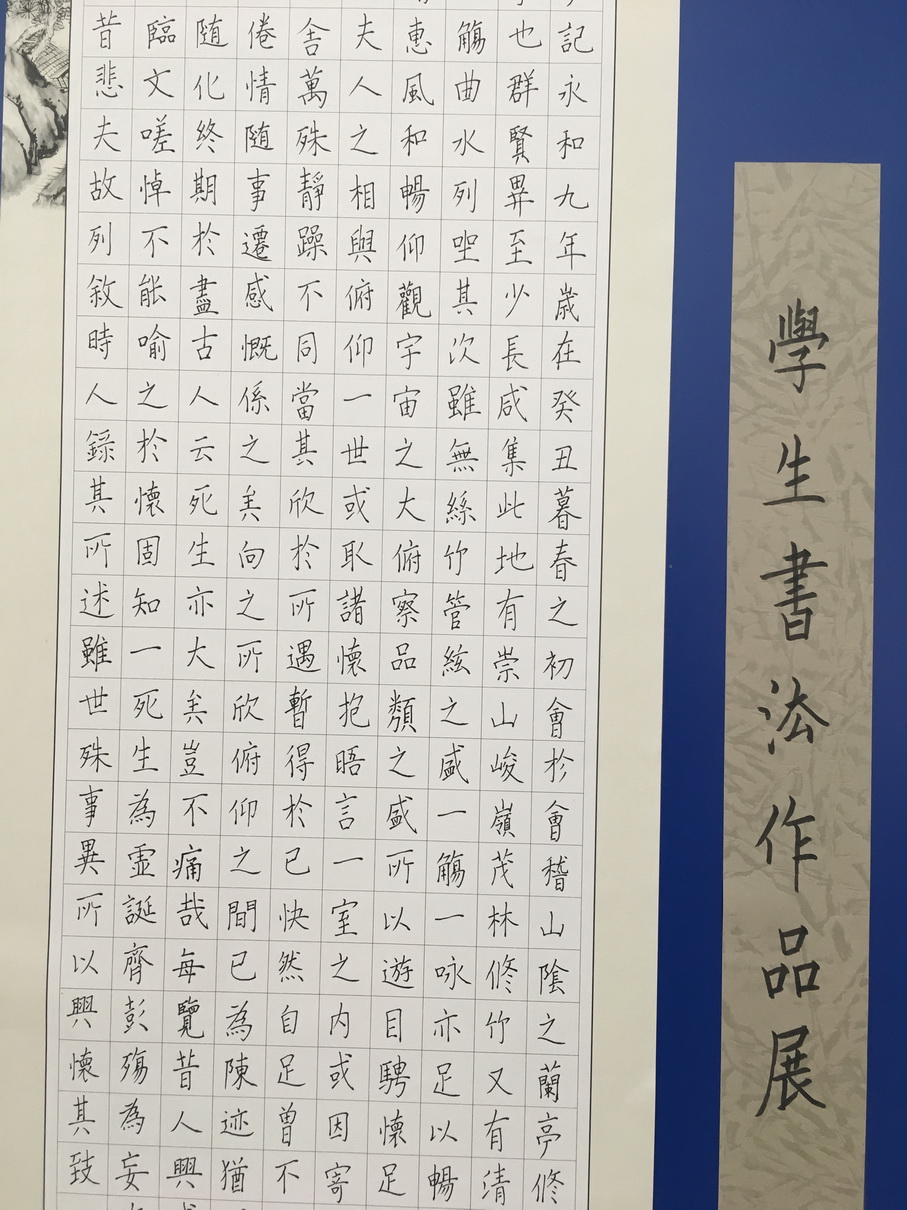 學生書法作品展
記永和九年歲在癸丑暮春之初會於會稽山陰之蘭亭修
也群賢畢至少長咸集此地有崇山峻嶺茂林修竹又有清
觴曲水列坐其次雖無絲竹管絃之盛一觴一咏亦足以暢
惠風和暢仰觀宇宙之大俯察品類之盛所以遊目騁懷足
夫人之相與俯仰一世或取諸懷抱晤言一室之内或因寄
舍萬殊靜躁不同當其欣於所遇暫得於己快然自足曾不
倦情随事遷感慨係之矣向之所欣俯仰之間已為陳迹猶
随化終期於盡古人云死生亦大矣豈不痛哉每覽昔人興
臨文嗟悼不能喻之於懷固知一死生為虛誕齊彭殤為妄
昔悲夫故列敘時人錄其所述雖世殊事異所以興懷其致